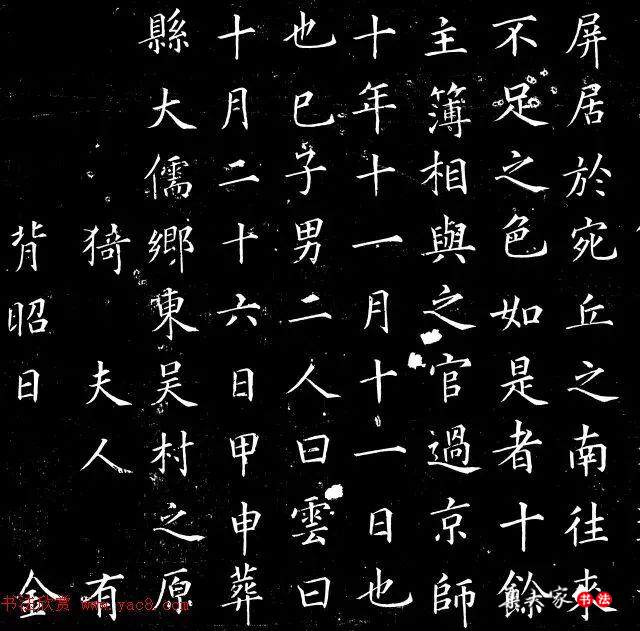 屏居於宛丘之南往來
不足之色如是者十餘
主簿相與之官過京師
十年十一月十一日也
也巳子男二人曰雲曰
十月二十六日甲申葬
縣大儒鄉東吴村之原
猗 夫人 有
昭日 金
书法欣赏 www.yac8.com
书法